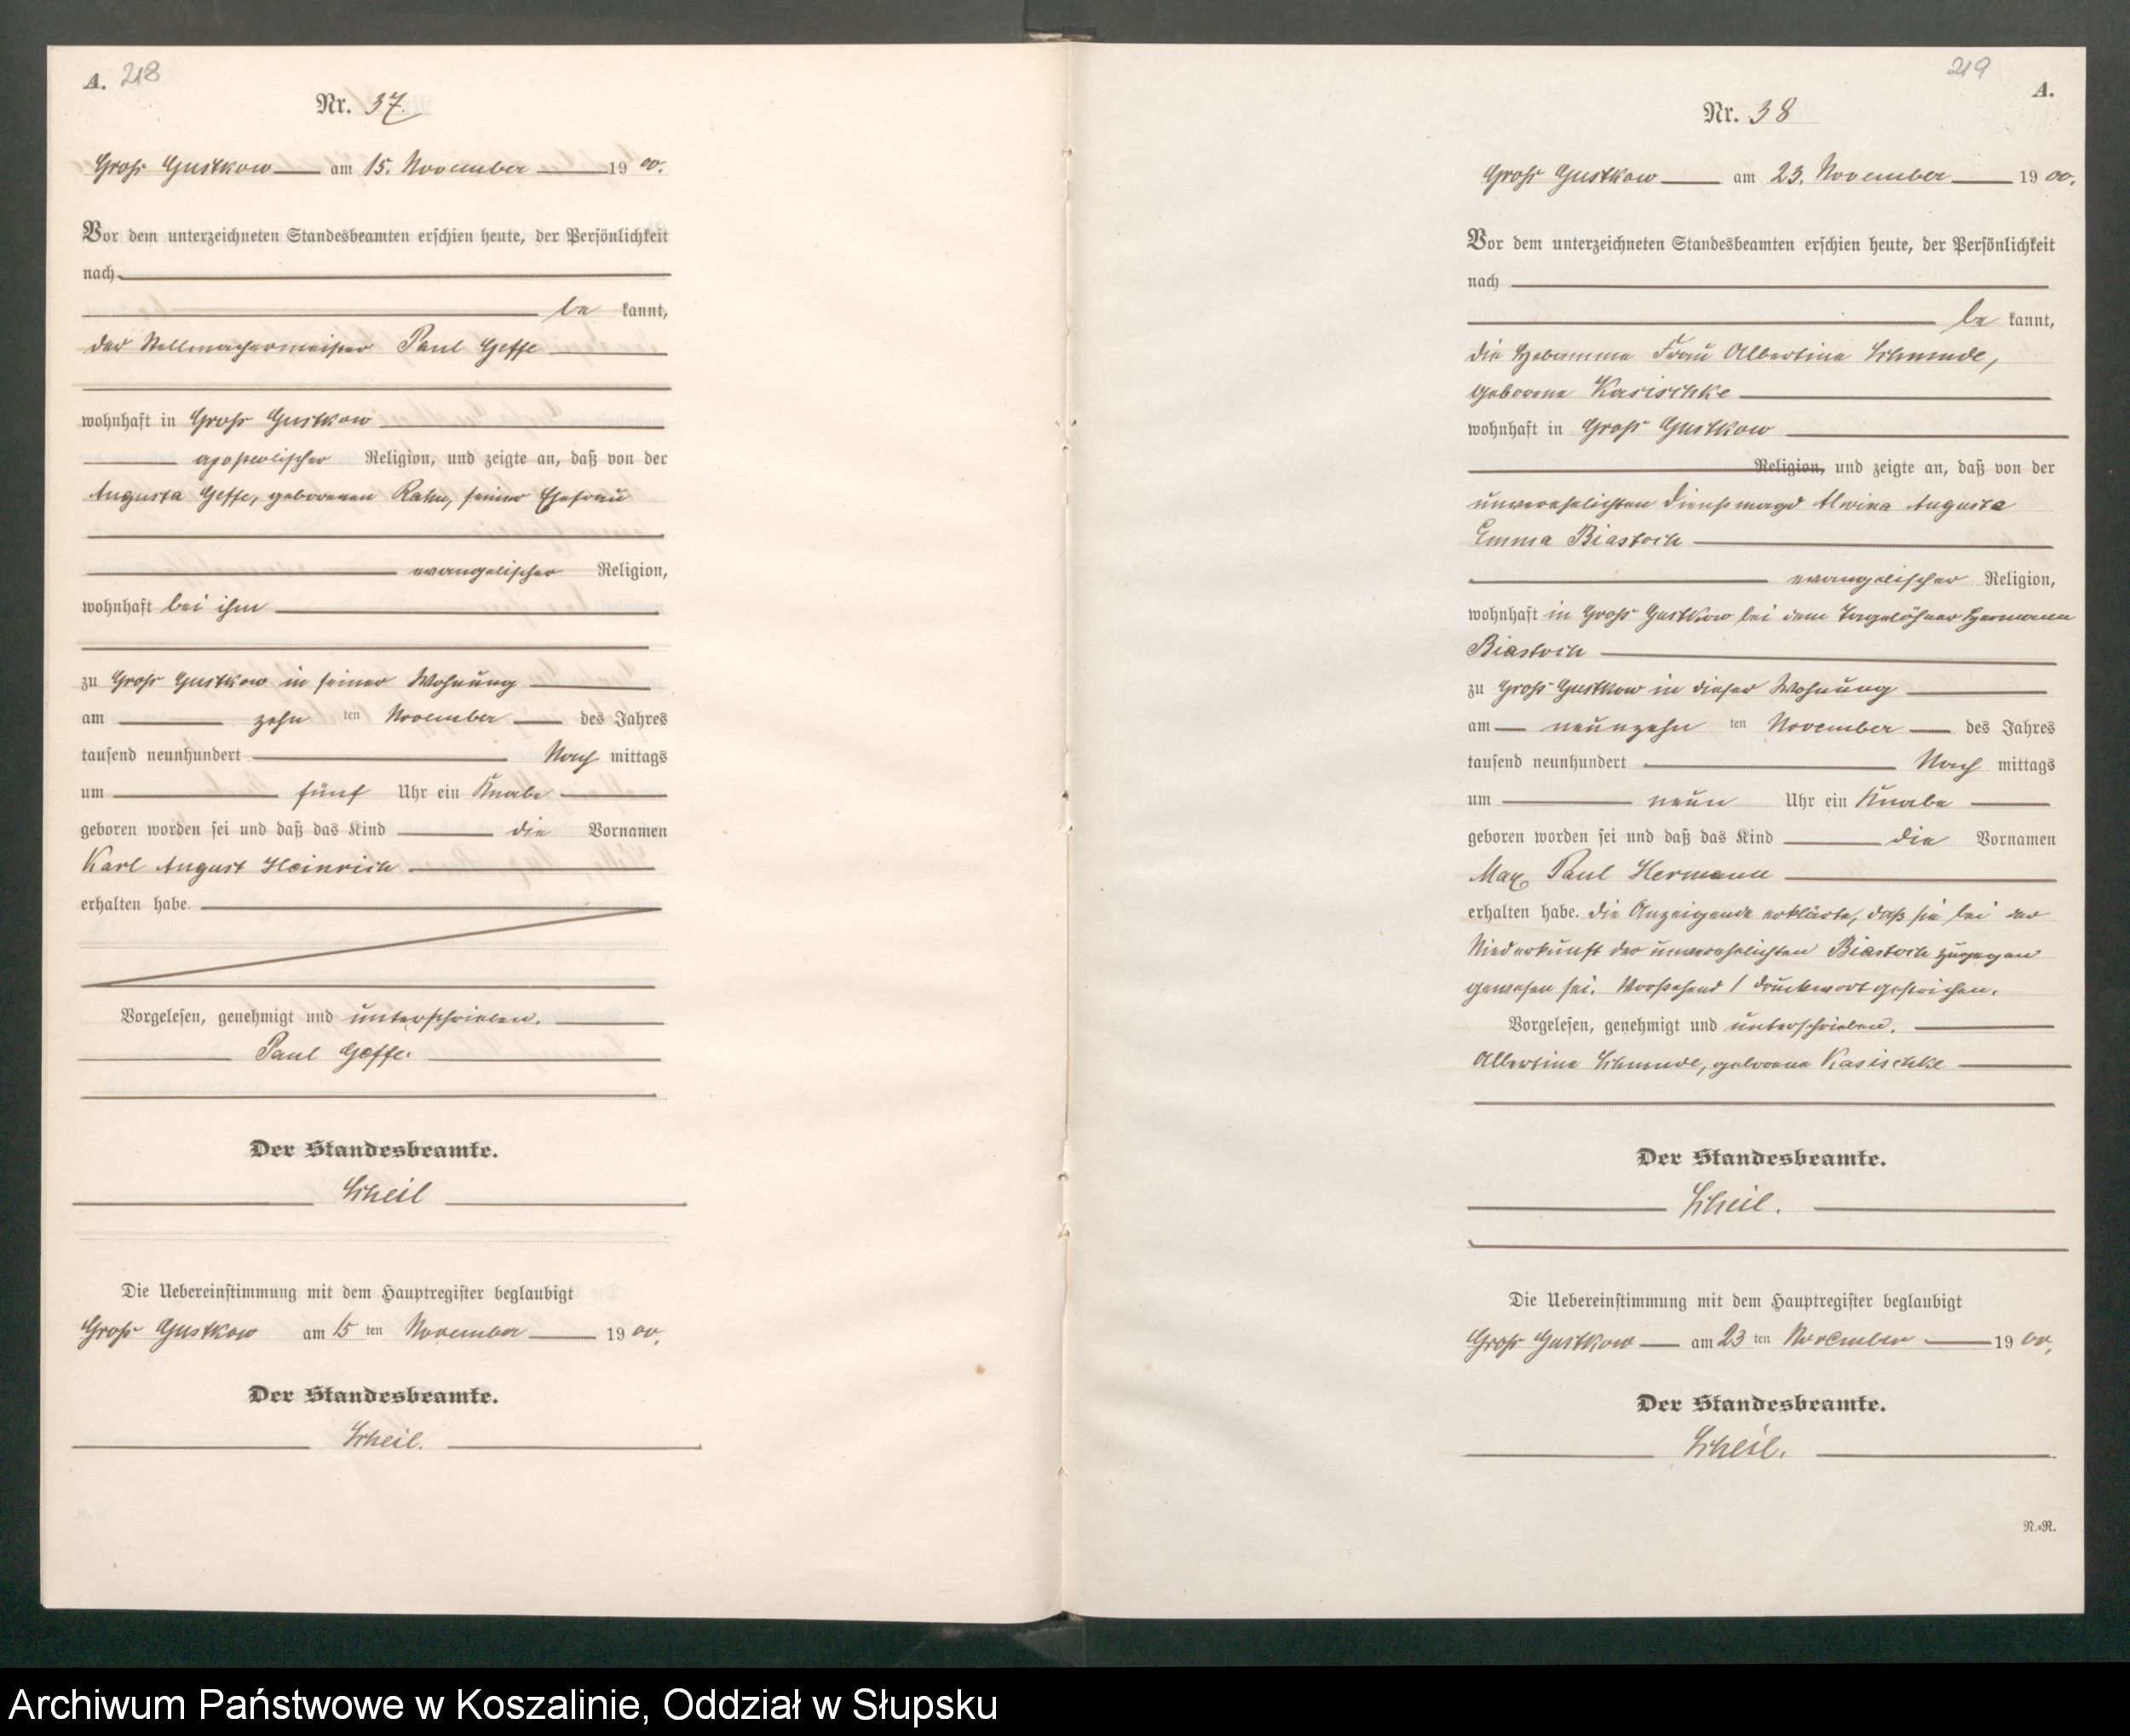 A. 218
Nr. 37.
Groß Gustkow am 15. November 19 00.
Vor dem unterzeichneten Standesbeamten erschien heute, der Persönlichkeit
nach
be kannt,
der Stellmachermeister Paul Geffe
wohnhaft in Groß Gustkow
apostolischer Religion, und zeigte an, daß von der
Augusta Geffe, geborenen Rahn, seiner Ehefrau
evangelischer Religion,
wohnhaft bei ihm
zu Groß Gustkow in seiner Wohnung
am zehn ten November des Jahres
tausend neunhundert Nach mittags
um fünf Uhr ein Knabe
geboren worden sei und daß das Kind die Vornamen
Karl August Heinrich
erhalten habe.
Vorgelesen, genehmigt und unterschrieben.
Paul Geffe.
Der Standesbeamte.
Scheil
Die Uebereinstimmung mit dem Hauptregister beglaubigt
Groß Gustkow am 15 ten November 19 00.
Der Standesbeamte.
Scheil.
219
A.
Nr. 38
Groß Gustkow am 23. November 19 00.
Vor dem unterzeichneten Standesbeamten erschien heute, der Persönlichkeit
nach
be kannt,
die Hebamme Frau Albertine Schmude,
geborene Kasischke
wohnhaft in Groß Gustkow
Religion, und zeigte an, daß von der
unverehelichten Dienstmagd Alwina Augusta
Emma Biastoch
evangelischer Religion,
wohnhaft in Groß Gustkow bei dem Tagelöhner Hermann
Biastoch
zu Groß Gustkow in dieser Wohnung
am neunzehn ten November des Jahres
tausend neunhundert Nach mittags
um neun Uhr ein Knabe
geboren worden sei und daß das Kind die Vornamen
Max Paul Hermann
erhalten habe. Die Anzeigende erklärte, daß sie bei der
Niederkunft der unverehelichten Biastoch zugegen
gewesen sei. Vorstehend 1 Druckwort gestrichen.
Vorgelesen, genehmigt und unterschrieben.
Albertine Schmude, geborene Kasischke
Der Standesbeamte.
Scheil.
Die Uebereinstimmung mit dem Hauptregister beglaubigt
Groß Gustkow am 23 ten November 19 00.
Der Standesbeamte.
Scheil.
N.=R.
Archiwum Państwowe w Koszalinie, Oddział w Słupsku